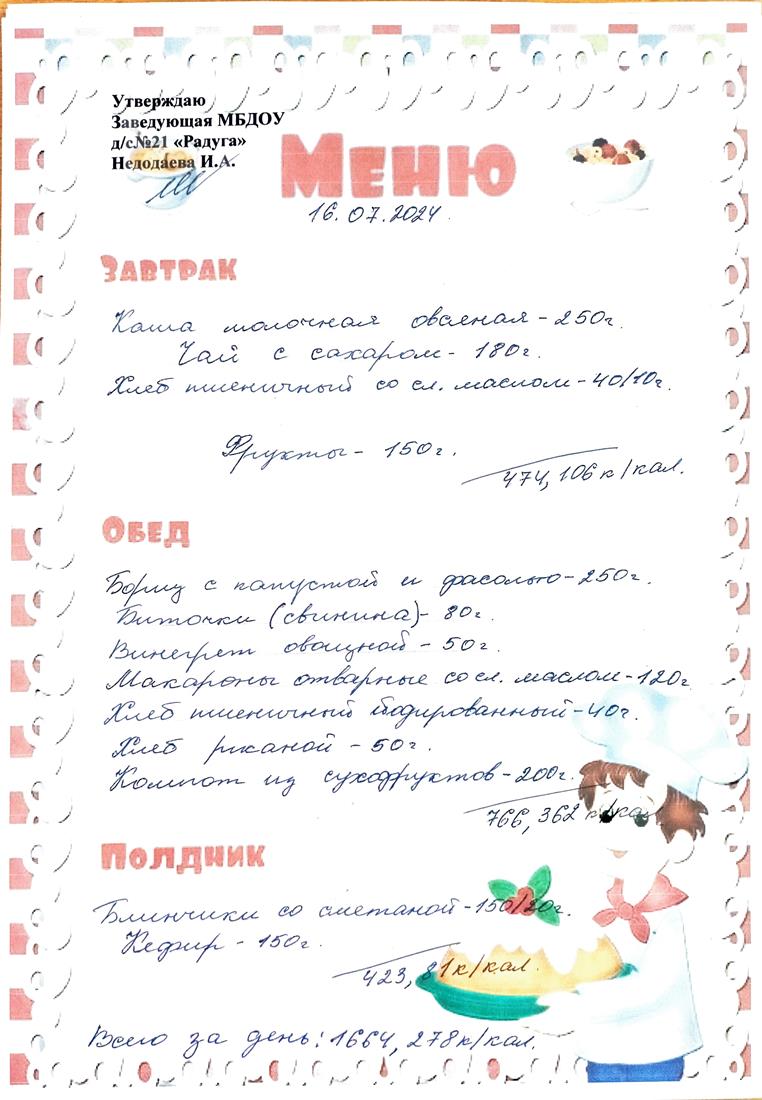 Утверждаю
Заведующая МБДОУ
д/с№21 «Радуга»
Недодаева И.А.
Меню
16.07.2024
Завтрак
Каша молочная овсяная - 250г.
Чай с сахаром - 180г.
Хлеб пшеничный со сл. маслом - 40/10г.
Фрукты - 150г.
474, 106 к/кал.
Обед
Борщ с капустой и фасолью - 250г.
Биточки (свинина) - 80г.
Винегрет овощной - 50г.
Макароны отварные со сл. маслом - 120г
Хлеб пшеничный йодированный - 40г.
Хлеб ржаной - 50г.
Компот из сухофруктов - 200г.
766, 362 к/кал.
Полдник
Блинчики со сметаной - 150/20г.
Кефир - 150г.
423, 81 к/кал.
Всего за день: 1664, 278 к/кал.